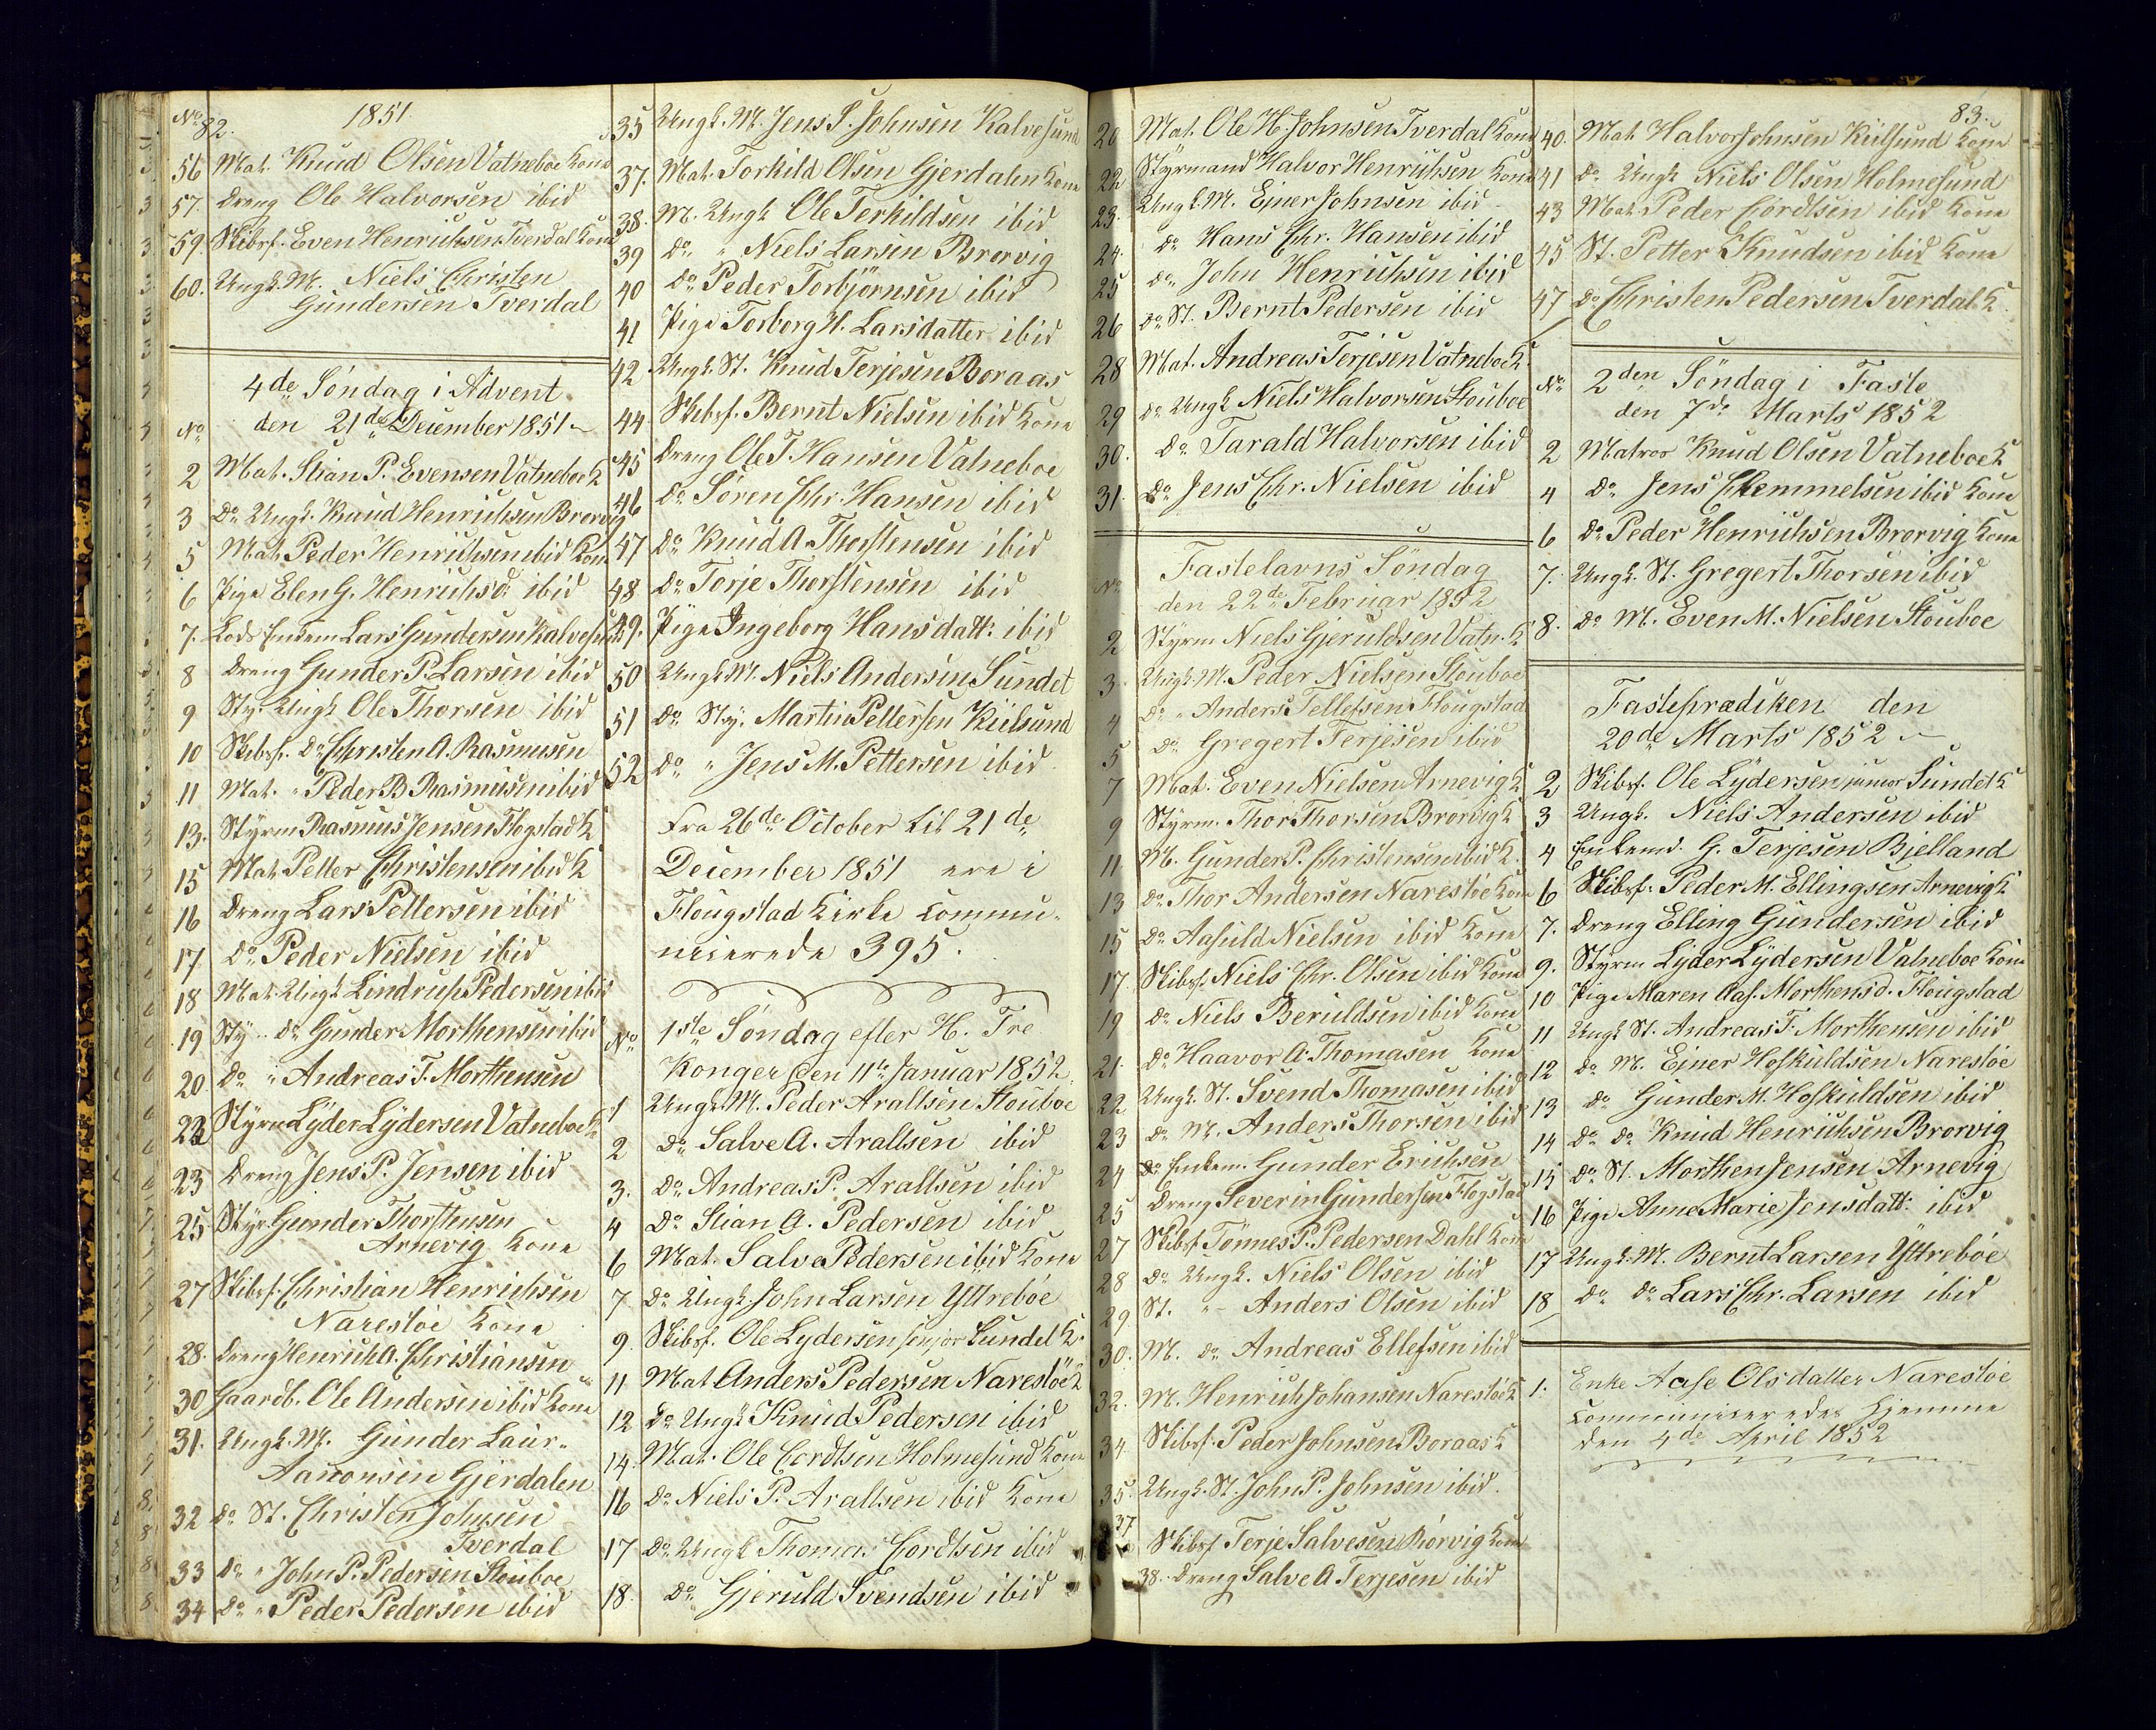 No
82.
1851
56 Mat. Knud Olsen Vatneboe Kone
57. Dreng Ole Halvorsen ibid
59. Skibsf. Even Henrichsen Tverdal Kone
60. Ungk. M. Niels Christen
Gundersen Tverdal
4de Söndag i Advent
No den 21de December 1851
2 Mat. Stian P. Evensen Vatneboe K
3 Do Ungk. Knud Henrichsen Brorvig
5 Mat. Peder Henrichsen ibid Kone
6 Pige Elen G. Henrichsd. ibid
7. Lods Enkem Lars Gundersen Kalvesund
8 Dreng Gunder P. Larsen ibid
9 Sty. Ungk Ole Thorsen ibid
10 Skibsf. Do Christen A. Rasmusen
11 Mat. " Peder B Rasmusen ibid
13. Styrm Rasmus Jensen Flogstad K
15 Mat. Petter Christensen ibid K
16 Dreng Lars Pettersen ibid
17 Do Peder Nielsen ibid
18 Mat. Ungk Lindrup Pedersen ibid
19 Sty Do Gunder Morthensen ibid
20. Do " Andreas T. Morthensen
22 Styrm Lyder Lydersen Vatneboe K
23 Dreng Jens P. Jensen ibid
25 Styr. Gunder Thorstensen
Arnevig Kone
27 Skibsf. Christian Henrichsen
Narestöe Kone
28. Dreng Henrich A. Christiansen
30 Gaardb. Ole Andersen ibid Kone
31. Ungk. M. Gunder Laur.
Aanonsen Gjerdalen
32 Do St. Christen Johnsen
Tverdal
33 Do " John P. Pedersen Stouboe
34 Do " Peder Pedersen ibid
35 Ungk. M. Jens S. Johnsen Kalvesund
37. Mat. Torkild Olsen Gjerdalen Kone
38. M. Ungk Ole Terkildsen ibid
39 do " Niels Larsen Brorvig
40 do Peder Torbjörnsen ibid
41 Pige Torborg H. Larsdatter ibid
42 Ungk. St. Knud Terjesen Boraas
44 Skibsf. Bernt Nielsen ibid Kone
45 Dreng Ole T. Hansen Vatneboe
46 do Sören Chr. Hansen ibid
47 do Knud A. Thorstensen ibid
48 do Torje Thorstensen ibid
49. Pige Ingeborg Hansdatt: ibid
50 Ungk M. Niels Andersen Sundet
51 do Sty. Martin Pettersen Kiilsund
52 do " Jens M. Pettersen ibid
Fra 26de October til 21de
December 1851 ere i
Flougstad Kirke commu-
nicerede 395.
No 1ste Söndag efter H. Tre
Konger den 11te Januar 1852.
1 Ungk. M. Peder Araltsen Stouboe
2 do Salve A. Araltsen ibid
3. do Andreas P. Araltsen ibid
4 do Stian A. Pedersen ibid
6 Mat. Salve Pedersen ibid Kone
7 do Ungk John Larsen Yttreböe
9. Skibsf. Ole Lydersen senior Sundet K.
11 Mat Anders Pedersen Narestöe K
12 do Ungk Knud Pedersen ibid
14. Mat. Ole Cordtsen Holmesund Kone
16 do Niels P. Araltsen ibid Kone
17 do Ungk Thomas Cordtsen ibid
18. do Gjeruld Svendsen ibid
20 Mat. Ole H. Johnsen Tverdal Kone
22 Styrmand Halvor Henrichsen Kone
23. Ungk. M. Ejner Johnsen ibid
24. do Hans Chr. Hansen ibid
25 do John Henrichsen ibid
26 do St. Bernt Pedersen ibid
28 Mat. Andreas Terjesen Vatneboe K.
29 do Ungk Niels Halvorsen Stouboe
30. do Tarald Halvorsen ibid
31. do Jens Chr. Nielsen ibid
Fastelavns Söndag
No den 22de Februar 1852
2 Styrm Niels Gjeruldsen Vatn. K
3. Ungk. M. Peder Nielsen Stouboe
4 do " Anders Tellefsen Flougstad
5 do Gregert Terjesen ibid
7 Mat. Even Nielsen Arnevig K
9 Styrm. Thor Thorsen Brorvig K
11. M. Gunder P. Christensen ibid K.
13 do Thor Andersen Narestöe Kone
15 do Aasuld Nielsen ibid Kone
17. Skibsf. Niels Chr. Olsen ibid Kone
19 do Niels Beruldsen ibid Kone
21. do Haavor A. Thomasen Kone
22 Ungk. St. Svend Thomasen ibid
23 do M. Anders Thorsen ibid
24 do Enkem. Gunder Erichsen
25 Dreng Severin Gundersen Flogstad
27 Skibsf Tönnes P. Pedersen Dahl Kone
28 do Ungk. Niels Olsen ibid
29 St. " Anders Olsen ibid
30. M. do Andreas Ellefsen ibid
32. M. Henrich Johansen Narestöe K
34 Skibsf. Peder Johnsen Boraas K
35. Ungk. St. John P. Johnsen ibid.
37 Skibsf Terje Salvesen Rörvig Kone
38. Dreng Salve A Terjesen ibid
83.
40. Mat. Halvor Johnsen Kiilsund Kone
41 do Ungk Niels Olsen Holmesund
43 Mat. Peder Cordtsen ibid Kone
45 St. Petter Knudsen ibid Kone
47 do Christen Pedersen Tverdal K.
No 2den Söndag i Faste
den 7de Marts 1852
2 Matros Knud Olsen Vatneboe K
4 do Jens Chemmelsen ibid Kone
6 do Peder Henrichsen Brorvig Kone
7. Ungk. St. Gregert Thorsen ibid
8. do M. Even M. Nielsen Stouboe
Fasteprædiken den
20de Marts 1852
2 Skibsf. Ole Lydersen junior Sundet K
3 Ungk. Niels Andersen ibid
4 Enkemd. G. Terjesen Bjelland
6 Skibsf. Peder M. Ellingsen Arnevig K
7. Dreng Elling Gundersen ibid
9. Styrm Lyder Lydersen Vatneboe Kone
10 Pige Maren Aas. Morthensd. Flougstad
11 Ungk St. Andreas T. Morthensen ibid
12 do M. Einer Hoskuldsen Narestöe
13 do Gunder M. Hoskuldsen ibid
14 do do Knud Henrichsen Brorvig
15 do St. Morthen Jensen Arnevig
16 Pige Anne Marie Jensdatt: ibid
17 Ungk. M. Bernt Larsen Yttreböe
18 do do Lars Chr. Larsen ibid
1. Enke Aase Olsdatter Narestöe
communiceredes hjemme
den 4de April 1852